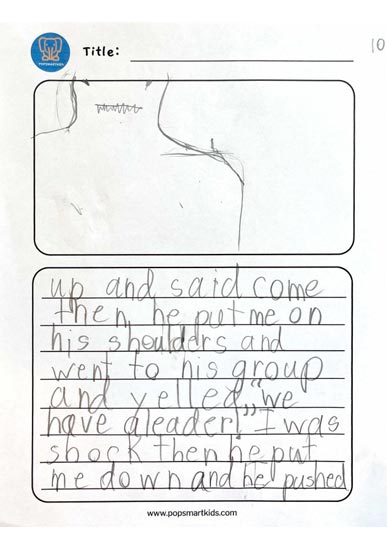 10
POPSMARTKIDS
Title:
up and said come
then he put me on
his shoulders and
went to his group
and yelled, "we
have a leader!" I was
shock then he put
me down and he pushed
www.popsmartkids.com